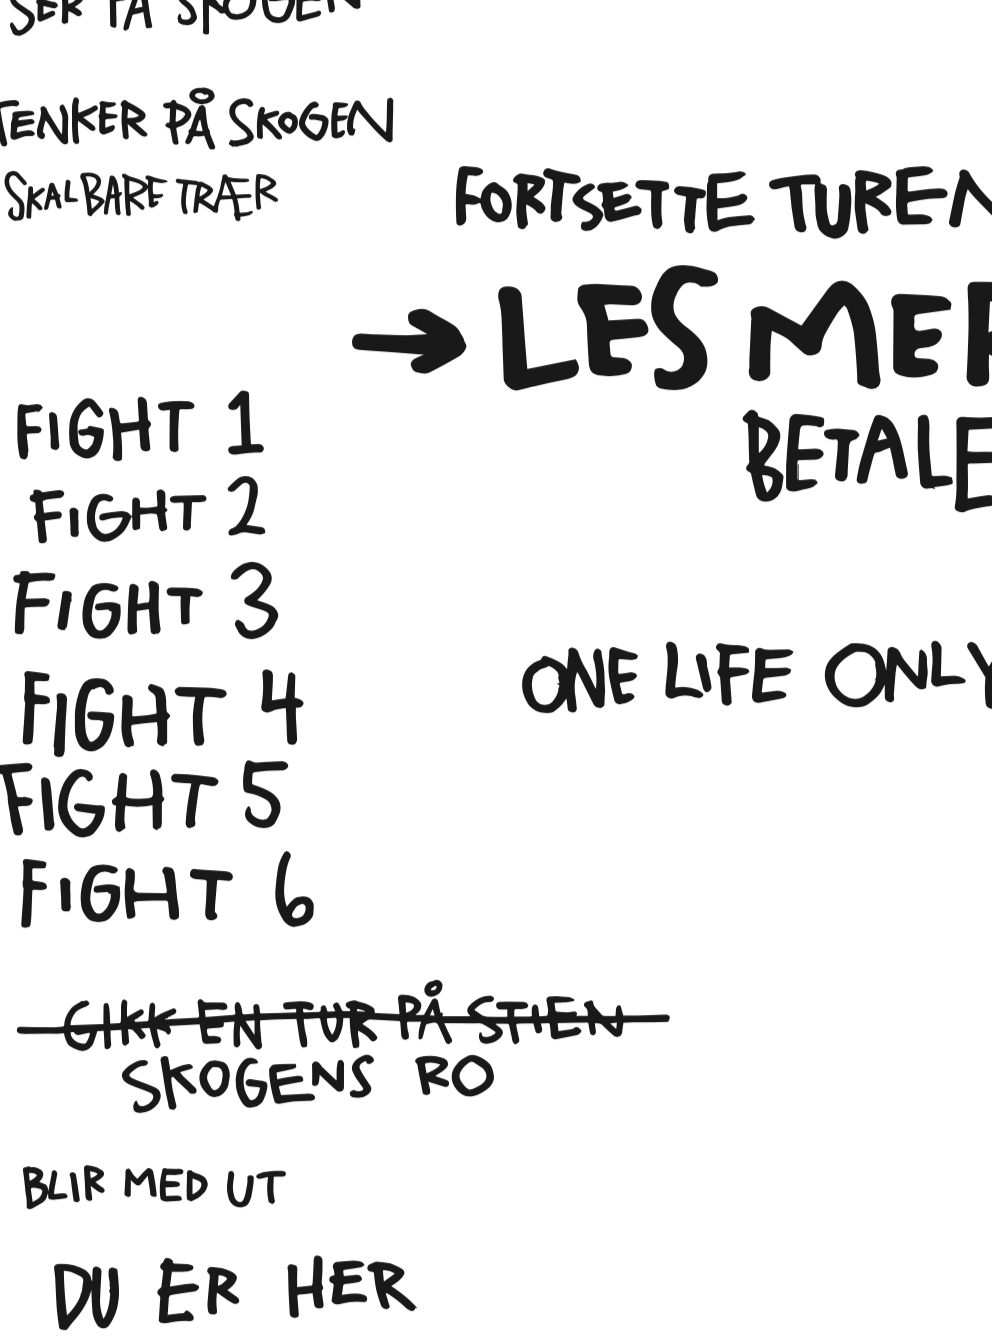 SER PÅ SKOGEN
TENKER PÅ SKOGEN
SKALBARE TRÆR
FORTSETTE TUREN
→ LES MER
BETALE
FIGHT 1
FIGHT 2
FIGHT 3
FIGHT 4
FIGHT 5
FIGHT 6
ONE LIFE ONLY
GIKK EN TUR PÅ STIEN
SKOGENS RO
BLIR MED UT
DU ER HER